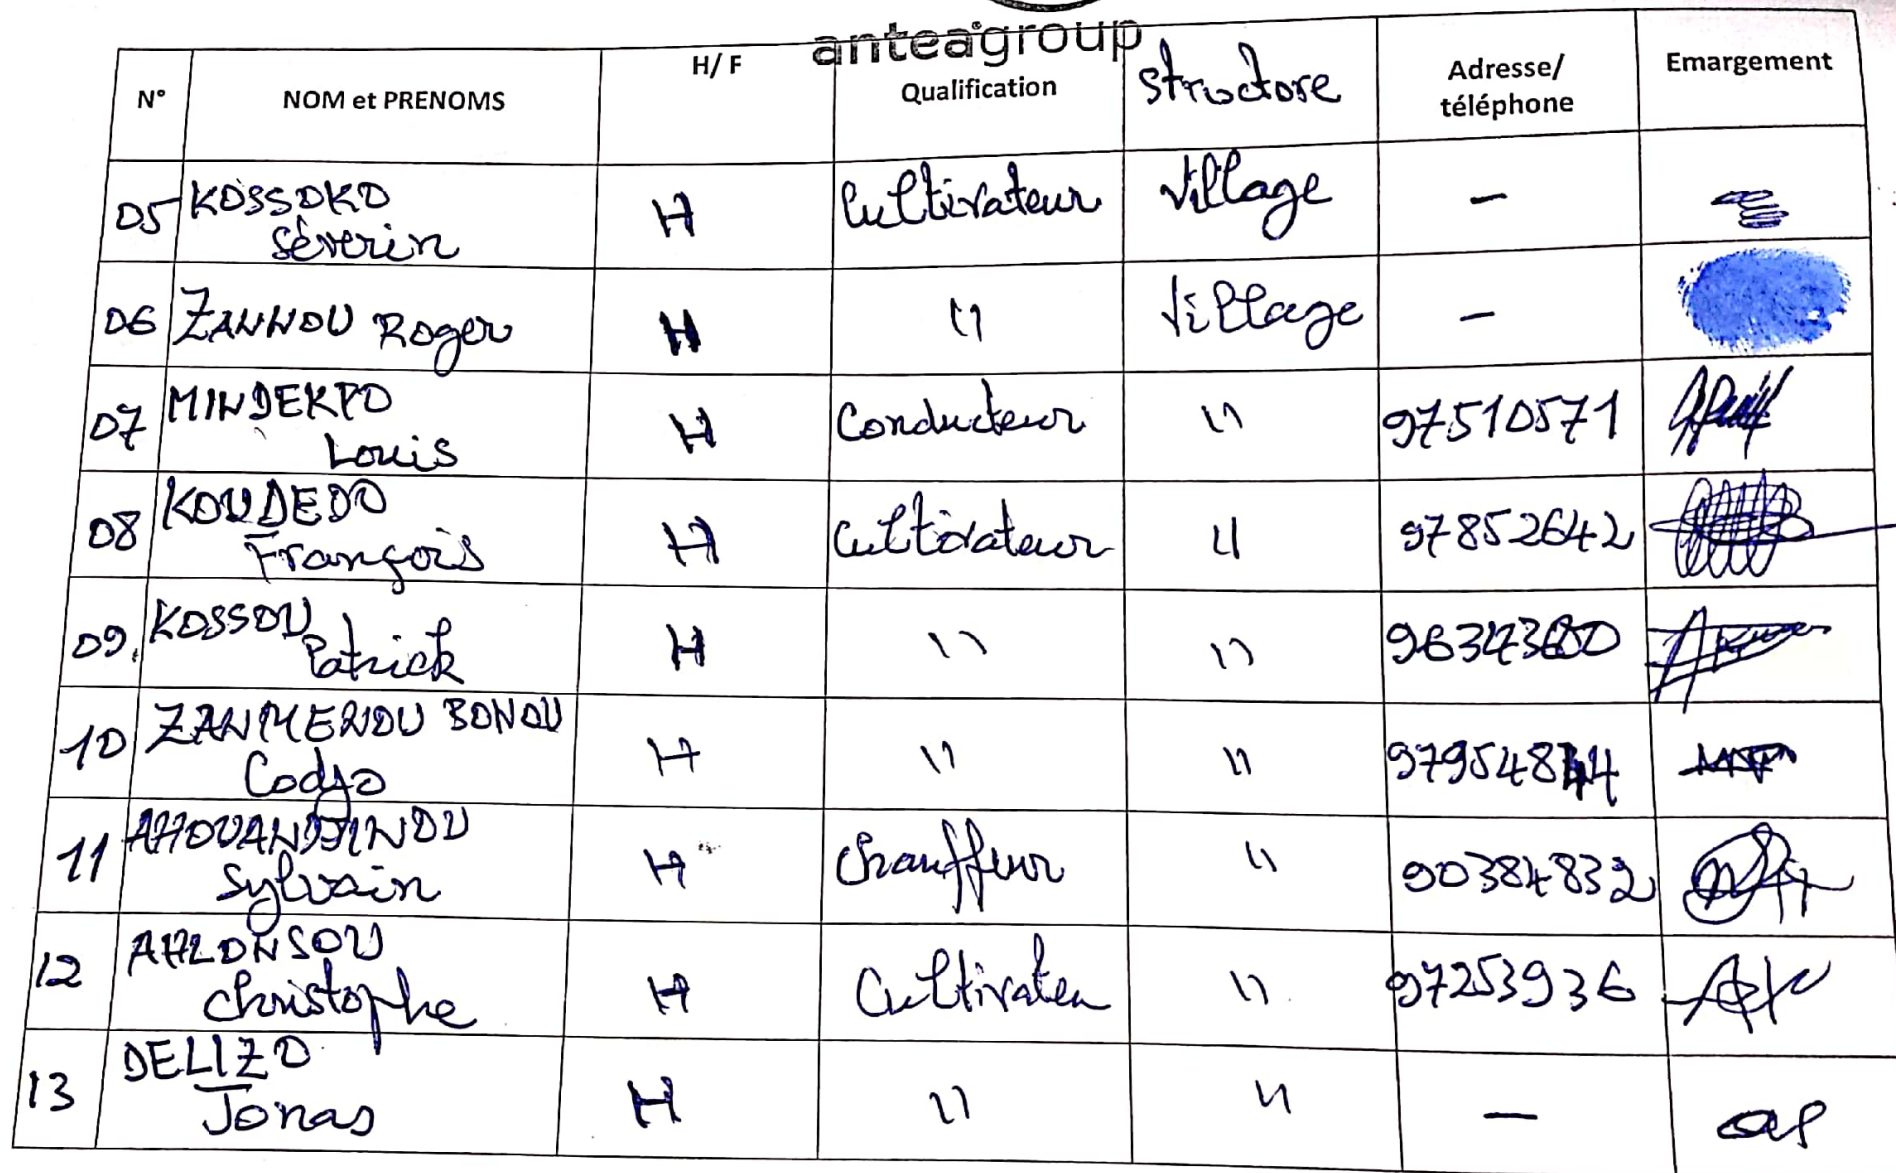 anteagroup
N° NOM et PRENOMS H/F Qualification Structure Adresse/ téléphone Emargement
05 KOSSOKO Séverin H Cultivateur Village –
06 ZANNOU Roger H '' Village –
07 MINDEKPO Louis H Conducteur '' 97510571
08 KOUDEDO François H Cultivateur '' 97852642
09. KOSSOU Patrick H '' ''
10 ZANMENOU BONOU Codjo H '' ''
11 AHOUANDJINOU Sylvain H Chauffeur '' 90384832
12 AHLONSOU Christophe H Cultivateu '' 97253936
13 DELIZO Jonas H '' '' –